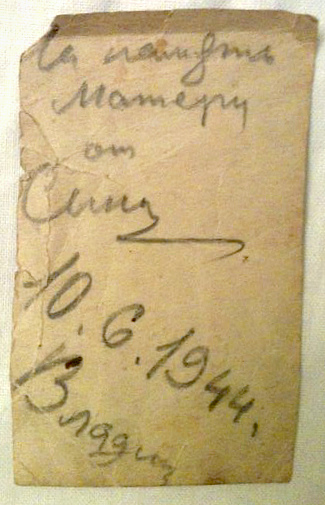 На память
Матери
от
Сына
10.6.1944.